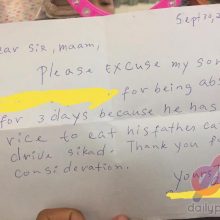 Sept 30, 2
ear Sir, maam,
Please excuse my son
for being abs
for 3 days because he has
rice to eat his father ca
dride sikad. Thank you fo
consideration.
yours
dailyp